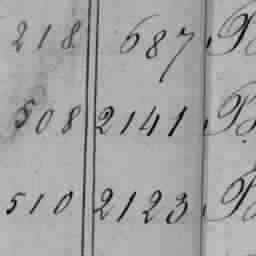 218 687 B
508 2141 B
510 2123 B